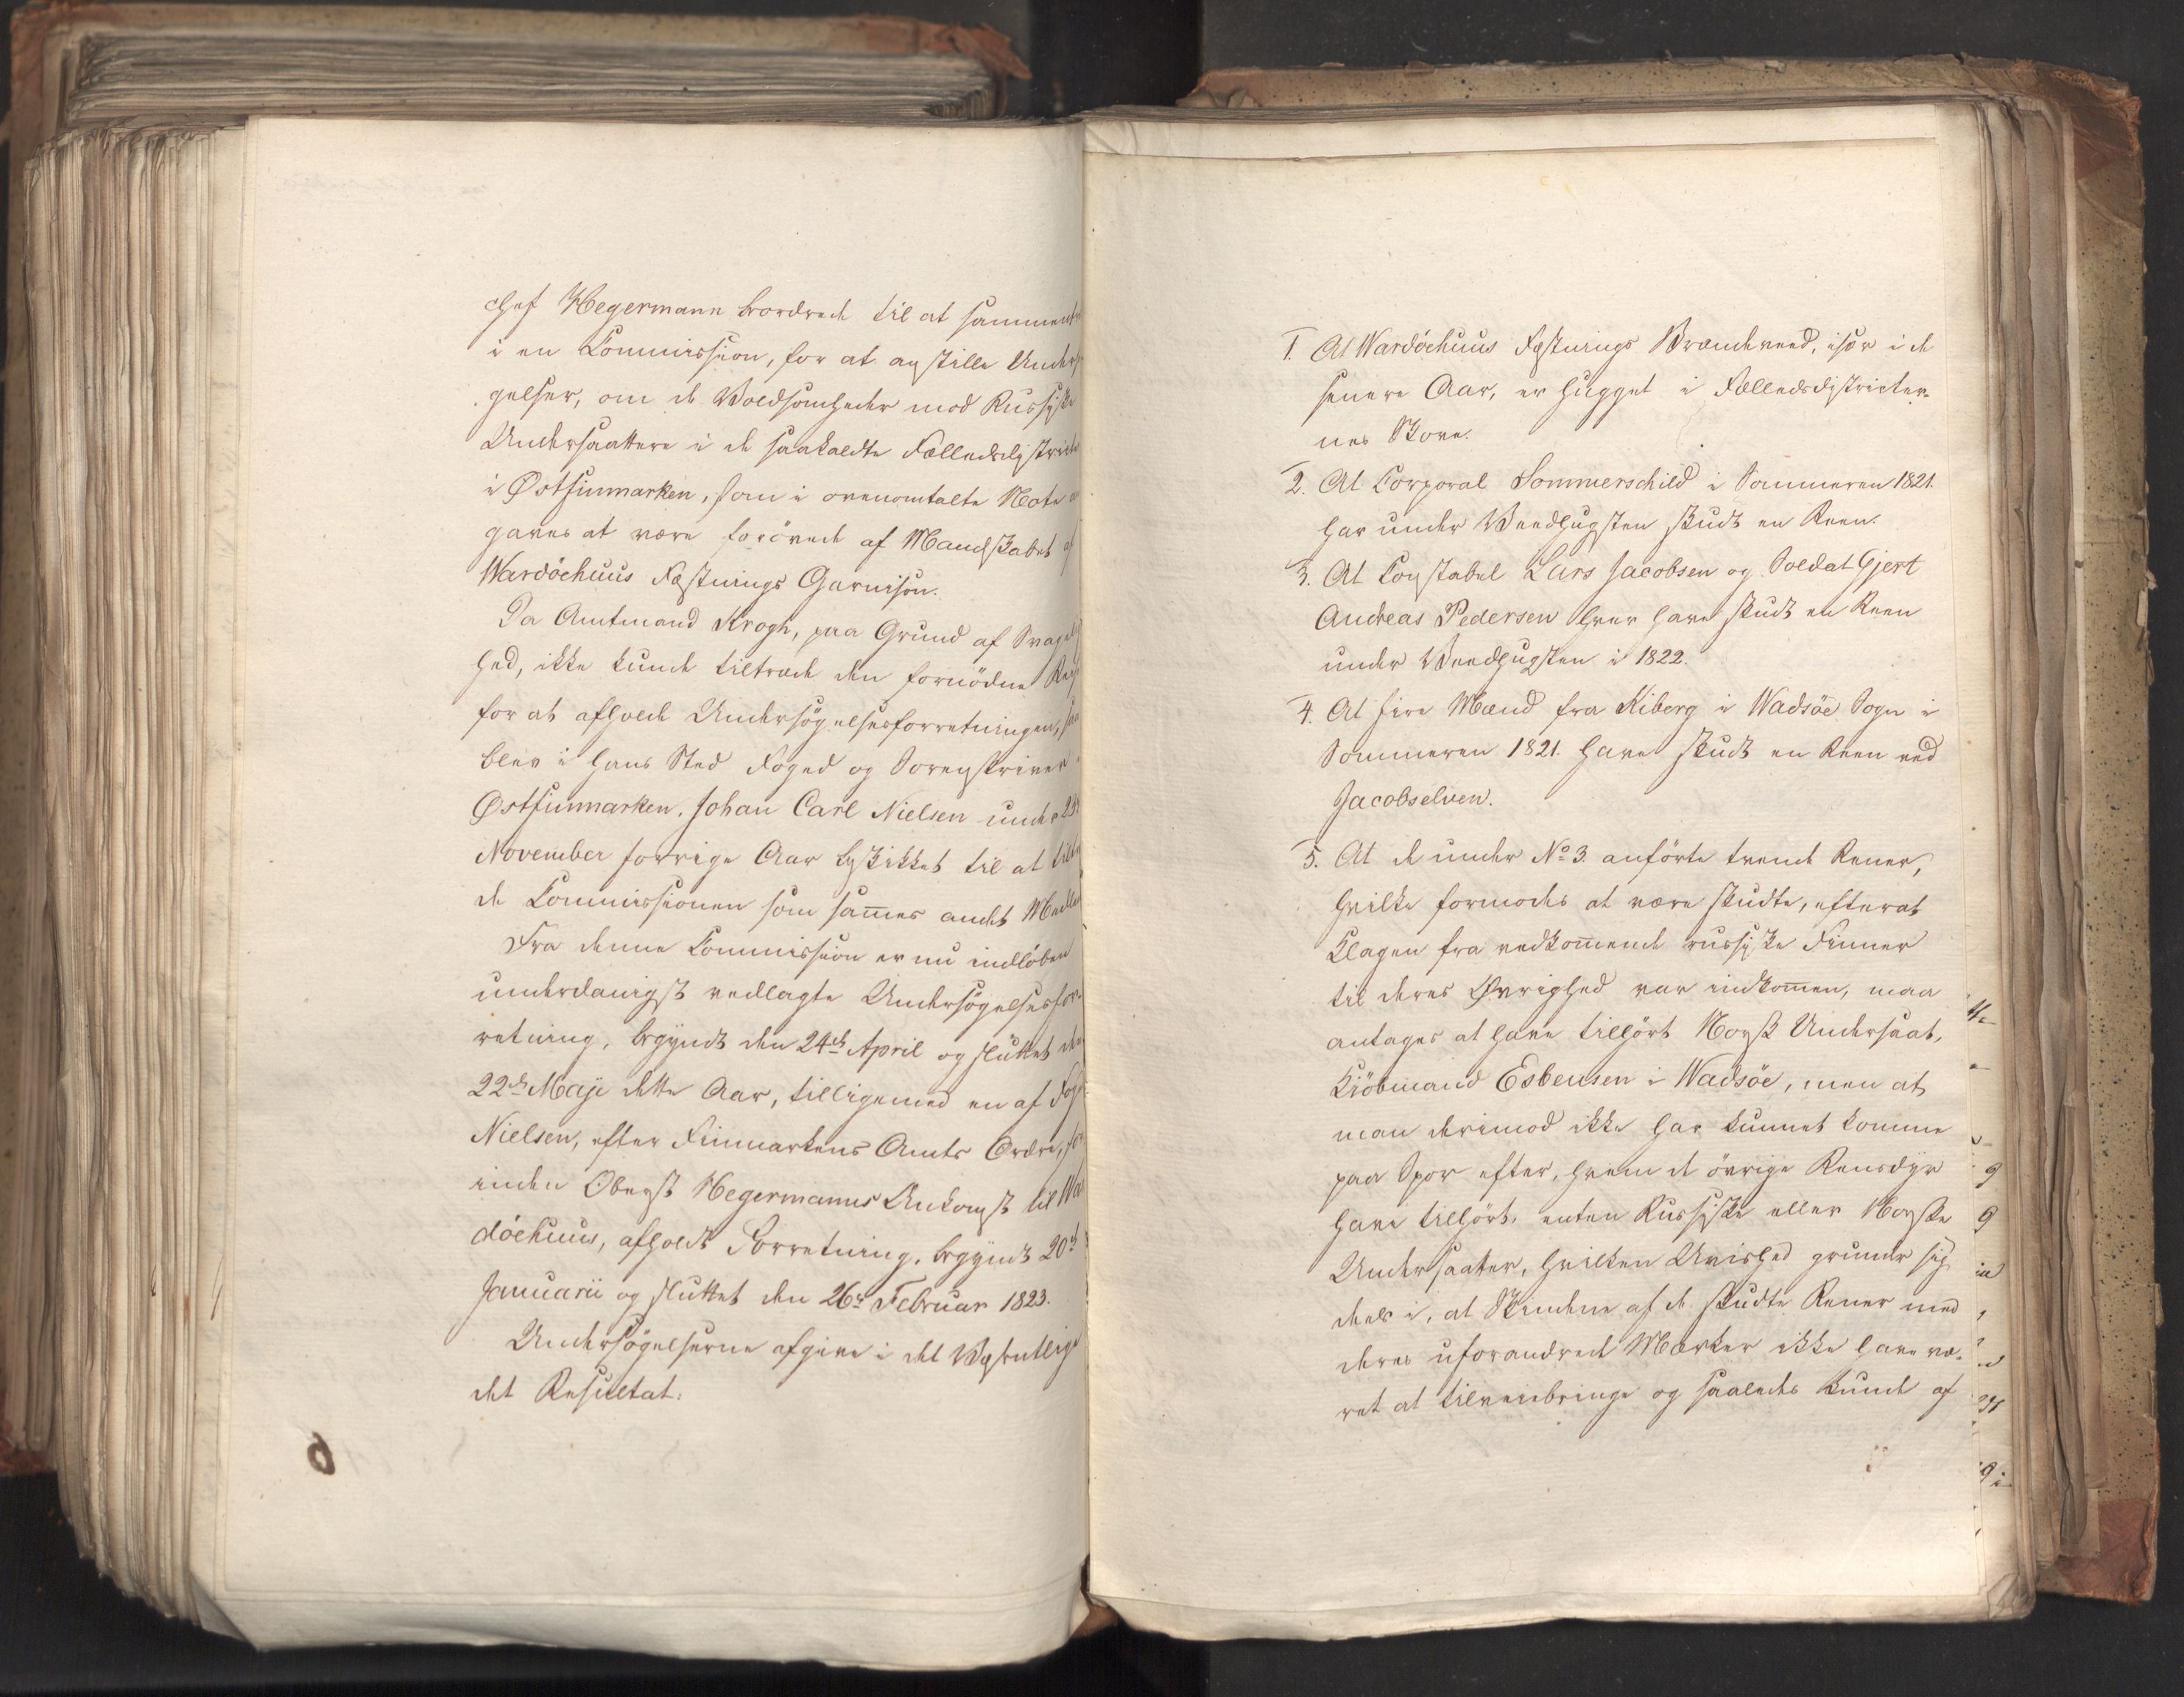 chef Hegermann beordrede til at sammentræ
i en Commission, for at anstille Undersø
gelser, om de Voldsomheder mod Russiske
Undersaattere i de saakaldte Fællesdistricter
i Østfinmarken, som i ovenomtalte Note an
gaves at være forövede af Mandskabet af
Wardöehuus Fæstnings Garnison.
Da Amtmand Krogh, paa Grund af Svagelig
hed, ikke kunde tiltræde den fornödne Reise
for at afholde Undersögelsesforretningen, saa
blev i hans Sted Foged og Sorenskriver i
Østfinmarken, Johan Carl Nielsen under 23
November forrige Aar beskikket til at tiltræ
de Commissionen som sam̄es andet Medlem
Fra denne Commission er nu indlöben
underdanigst vedlagte Undersögelsesfor-
retning, begyndt den 24de April og sluttet den
22de Maji dette Aar, tilligemed en af Foged
Nielsen, efter Finmarkens Amts Ordre, for
inden Oberst Hegermanns Ankomst til War
döehuus, afholdt Forretning, begyndt 20de
Januarii og sluttet den 26de Februar 1823.
Undersögelserne afgive i det Væsentlige
det Resultat:
1. At Wardöehuus Fæstnings Brændeveed, især i de
senere Aar, er hugget i Fælledsdistricter-
nes Skove.
2. At Corporal Sommerschild i Sommeren 1821.
har under Veedhugsten skudt en Reen.
3. At Constabel Lars Jacobsen og Soldat Gjert
Andreas Pedersen hver have skudt en Reen
under Veedhugsten i 1822.
4. At fire Mænd fra Kiberg i Wadsöe Sogn i
Sommeren 1821. have skudt en Reen ved
Jacobselven.
5. At de under No 3. anförte tvende Rener,
hvilke formodes at være skudte, efterat
Klagen fra vedkom̄ende russiske Finner
til deres Øvrighed var indkom̄en, maa
antages at have tilhört Norsk Undersaat,
Kiöbmand Esbensen i Wadsöe, men at
man derimod ikke har kunnet komme
paa Spor efter, hvem de övrige Rensdyr
have tilhört, enten Russiske eller Norske
Undersaatter, hvilken Uvished grunder sig
deels i, at Skindene af de skudte Rener med
deres uforandrede Mærker ikke have væ-
ret at tilveiebringe og saaledes kunde af